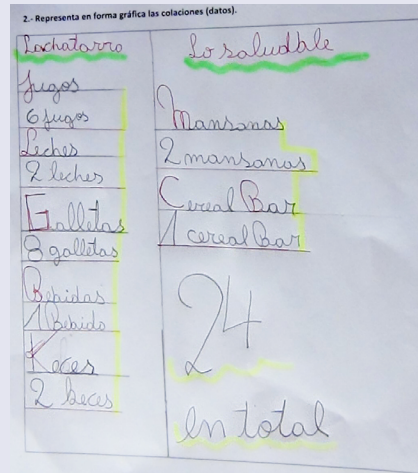 2.- Representa en forma gráfica las colaciones (datos).
Lochatarro
Jugos
6 jugos
Leches
2 leches
Galletas
8 galletas
Bebidas
1 Bebido
Keces
2 keces
Lo saludable
Mansanas
2 mansanas
Cereal Bar
1 cereal Bar
24
en total